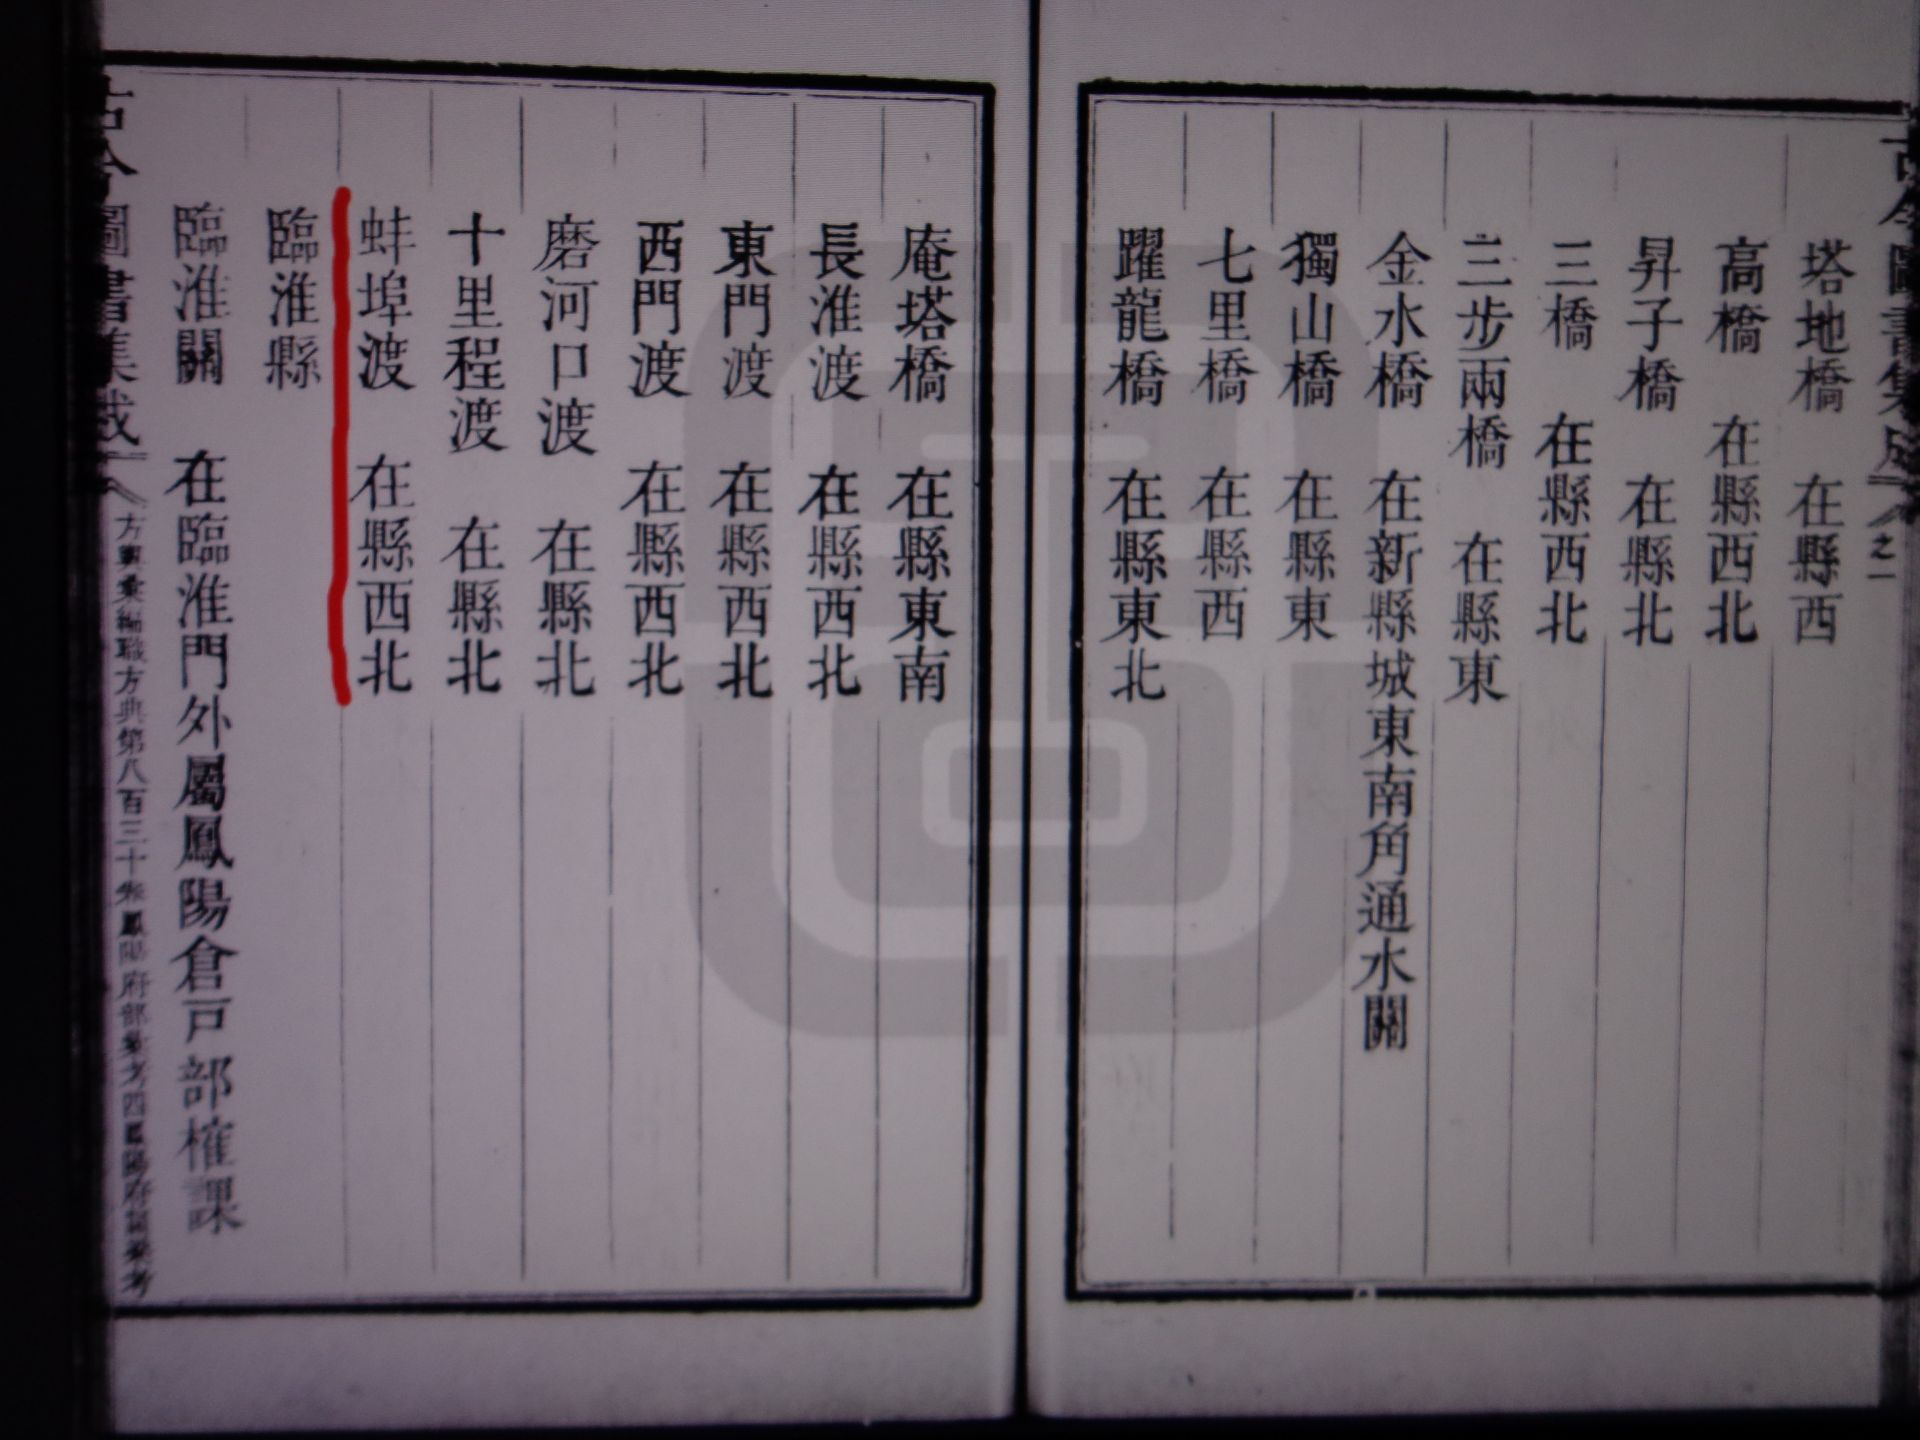 古今圖書集成
之一
塔地橋　在縣西
高橋　在縣西北
昇子橋　在縣北
三橋　在縣西北
三步兩橋　在縣東
金水橋　在新縣城東南角通水關
獨山橋　在縣東
七里橋　在縣西
躍龍橋　在縣東北
庵塔橋　在縣東南
長淮渡　在縣西北
東門渡　在縣西北
西門渡　在縣西北
磨河口渡　在縣北
十里程渡　在縣北
蚌埠渡　在縣西北
臨淮縣
臨淮關　在臨淮門外屬鳳陽倉戸部榷課
古今圖書集成
方輿彙編職方典第八百三十卷鳳陽府部彙考四鳳陽府